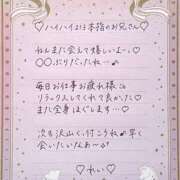 ♡ハイハイまは本指のお兄さん♡
ねんまた会えて嬉しいよ〜♡
○○ぶりだったね…♪
毎日お仕事お疲れ様に
リラックスしてくれて良かった♡
また全身ほぐします…♡
次も沢山く付こうね♪早く
会いたいなあ〜る
♡れい♡